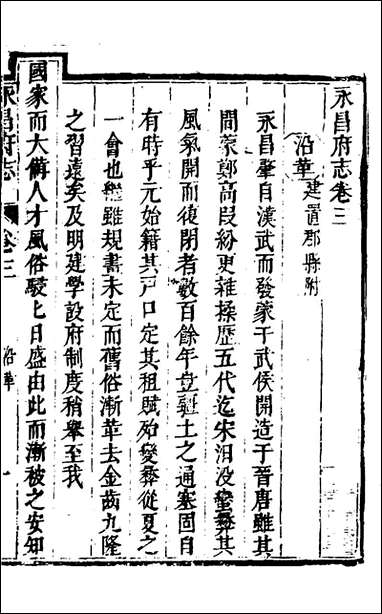 永昌府志卷三
沿革 建置郡縣附
永昌肇自漢武而發蒙于武侯開造于晉唐雖其
間蒙鄭高段紛更雜揉歷五代迄宋汨没蠻彝其
風氣開而復閉者數百餘年豈疆土之通塞固自
有時乎元始籍其戸口定其租賦殆變彝從夏之
一會也然雖規畫未定而舊俗漸革去金齒九隆
之習遠矣及明建學設府制度稍舉至我
國家而大備人才風俗駸駸日盛由此而漸被之安知
永昌府志
卷三
沿革
一